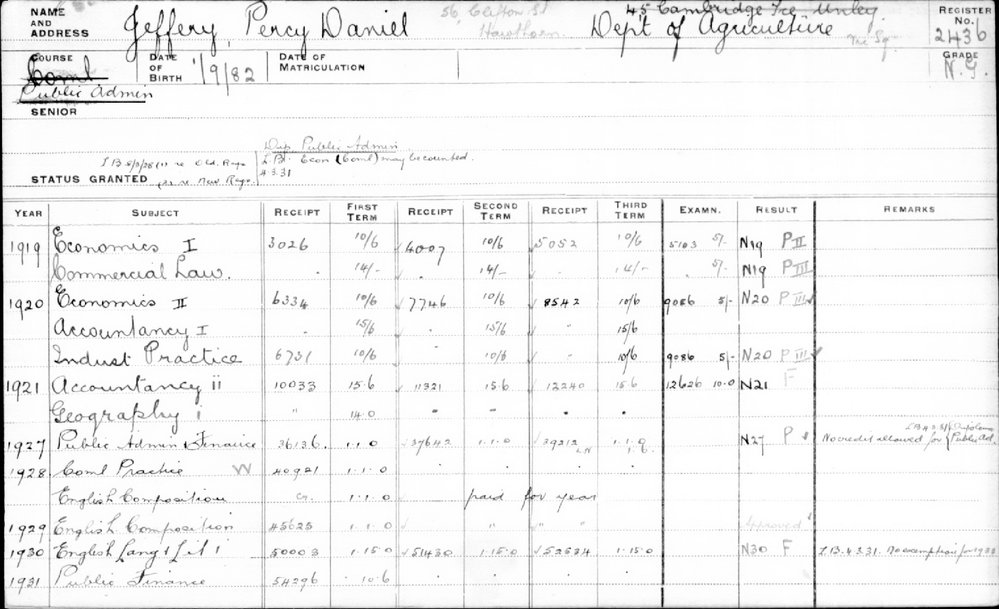 NAME AND ADDRESS Jeffery, Percy Daniel 56 Clifton St Hawthorn 45 Cambridge Tce Unley Dept of Agriculture Vic Sq. REGISTER No. 2436
COURSE Coml Public Admin DATE OF BIRTH 1/9/82 DATE OF MATRICULATION GRADE N.G.
SENIOR
Dip Public Admin
L.B. Econ (Coml) may be counted.
4.3.31
STATUS GRANTED re Old Regs re New Regs
YEAR SUBJECT RECEIPT FIRST TERM RECEIPT SECOND TERM RECEIPT THIRD TERM EXAMN. RESULT REMARKS
1919 Economics I 3026 10/6 4007 10/6 5052 10/6 5103 5/- N19 P II
Commercial Law. . 14/- . 14/- . 14/- . 5/- N19 P III
1920 Economics II 6334 10/6 7746 10/6 8542 10/6 9086 5/- N20 P III
Accountancy I . 15/6 . 15/6 " 15/6
Indust Practice 6731 10/6 . 10/6 " 10/6 9086 5/- N20 P III
1921 Accountancy ii 10033 15.6 11321 15.6 12240 15.6 12626 10.0 N21 F
Geography i " 14.0 " " " .
1927 Public Admin & Finance 36136 1.1.0 37642 1.1.0 39212 1.1.0 N27 P No credit allowed for Diploma Public Ad.
1928 Coml Practice W 40921 1.1.0
English Composition 1.1.0 paid for year
1929 English Composition 45623 1.1.0 " " "
1930 English Lang & Lit i 50003 1.15.0 51430 1.15.0 52534 1.15.0 N30 F L.B. 4.3.31. No exemption for 1930
1931 Public Finance 54296 10.6